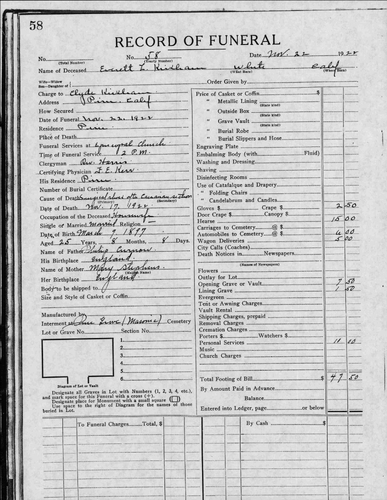 58
RECORD OF FUNERAL
No. 58 Date Nov. 22 1922
(Total Number) (Yearly Number)
Name of Deceased Everett L. Kirkham White Calif
(What Race) (Where Born)
Charge to Clyde Kirkham
Address Piru Calif
Order Given by
Date of Funeral Nov. 22. 1922
Residence Piru
Place of Death
Funeral Services at Episcopal Church
Time of Funeral Service 2 P.M.
Clergyman Rev. Harris
Certifying Physician
His Residence Piru
Number of Burial Certificate
Cause of Death
Date of Death Nov. 19, 1922
Occupation of the Deceased Housewife
Single or Married Married Religion
Date of Birth March 9 1897
Aged 25 Years 8 Months 8 Days
Name of Father Philip
His Birthplace England
Name of Mother Mary Stephens
Her Birthplace England
Body to be shipped to
Size and Style of Casket or Coffin
Manufactured by
Interment at (Masonic) Cemetery
Lot or Grave No. Section No.
Diagram of Lot or Vault
Designate all Graves in Lot with Numbers (1, 2, 3, 4, etc.),
and mark space for this Funeral with a cross (+).
Designate place for Monument with a small square
Use space to right of Diagram for the names of those
buried in Lot.
Price of Casket or Coffin $
" Metallic Lining
" Outside Box
" Grave Vault
" Burial Robe
" Burial Slippers and Hose
Engraving Plate
Embalming Body (with Fluid)
Washing and Dressing
Shaving
Disinfecting Rooms
Use of Catafalque and Drapery
" Folding Chairs
" Candelabrum and Candles
Gloves $ Crape $ 2 50
Door Crape $ Canopy $
Hearse 15 00
Carriages to Cemetery @ $
Automobiles to Cemetery @ $ 6 00
Wagon Deliveries 5 00
City Calls (Coaches)
Death Notices in Newspapers
(Names of Newspapers)
Flowers
Outlay for Lot
Opening Grave or Vault 7 50
Lining Grave 1 50
Evergreen
Tent or Awning Charges
Vault Rental
Shipping Charges
Removal Charges
Cremation Charges
Porters $ Watchers $
Personal Services 10 00
Music
Church Charges
Total Footing of Bill $ 47 50
By Amount Paid in Advance
Balance
Entered into Ledger, page or below
To Funeral Charges $
By Cash $